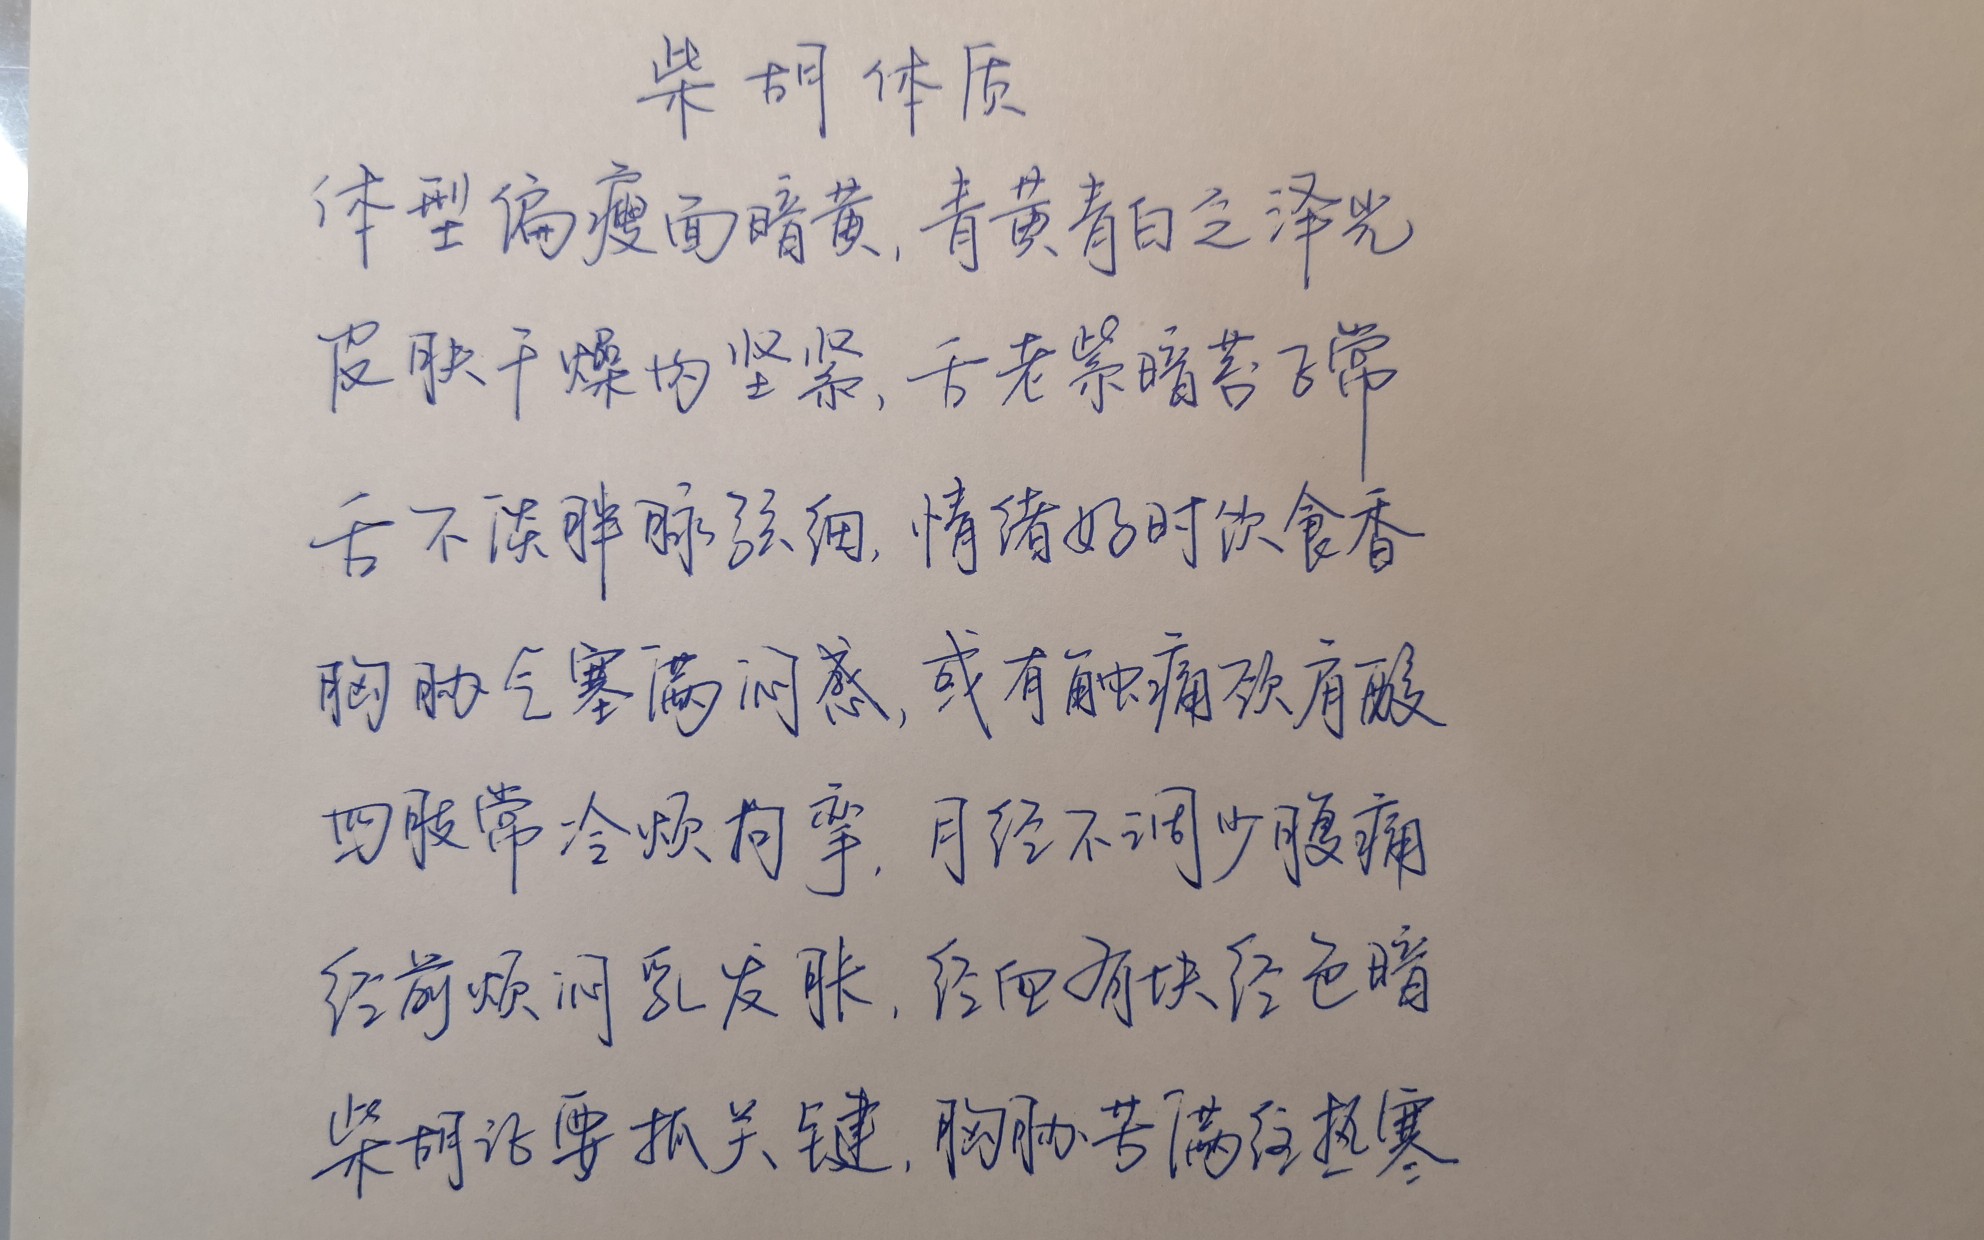 柴胡体质
体型偏瘦面暗黄,青黄青白之泽光
皮肤干燥肉坚紧,舌老紫暗苔正常
舌不淡胖脉弦细,情绪好时饮食香
胸胁气塞满闷感,或有触痛颈肩酸
四肢常冷烦拘挛,月经不调少腹痛
经前烦闷乳发胀,经血有块经色暗
柴胡证要抓关键,胸胁苦满往热寒